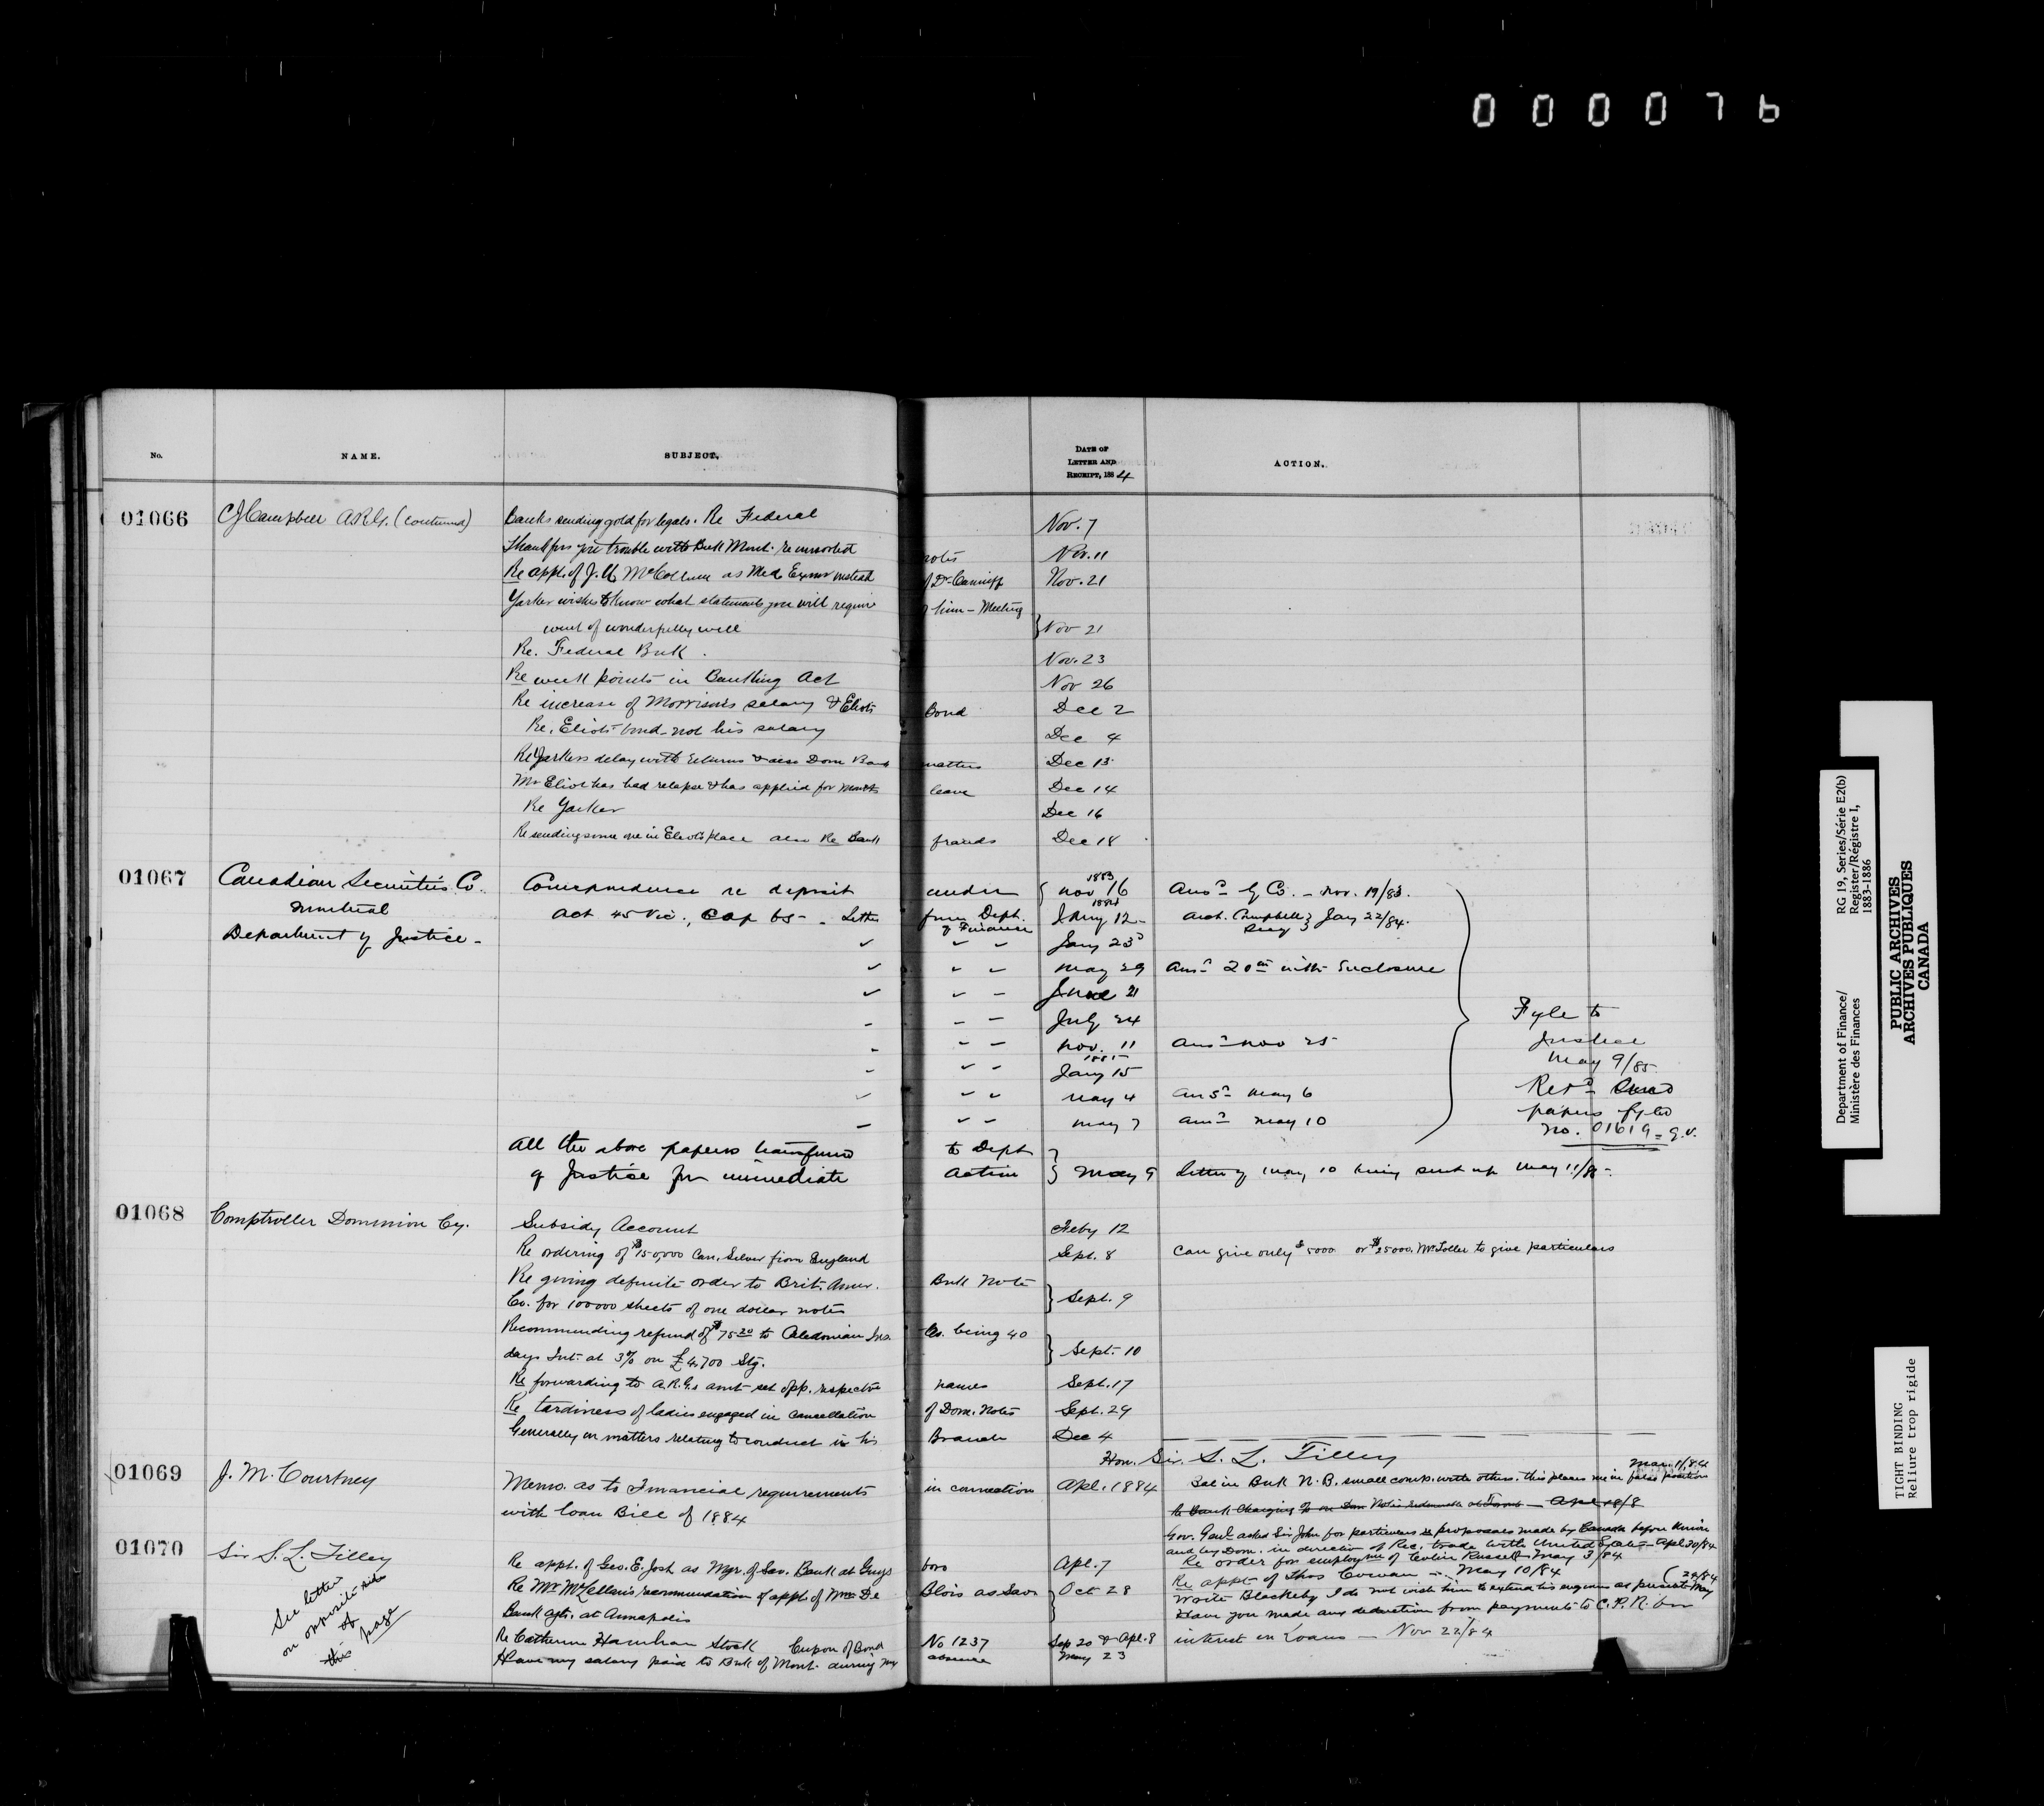 000076
No. NAME. SUBJECT. DATE OF LETTER AND RECEIPT, 1884 ACTION.
01066 CJ Campbell A.R.G. (continued) Banks sending gold for legals. Re Federal Nov. 7
Thank for your trouble with Bnk Mont. re unsorted notes Nov. 11
Re appt. of J.H. McCollum as Med Exmr instead of Dr. Canniff Nov. 21
Yarker wishes to know what statements you will require of him - Meeting
went of wonderfully well } Nov 21
Re. Federal Bnk. Nov. 23
Re weak points in Banking Act Nov 26
Re increase of Morrison's salary & Eliots Bond Dec 2
Re. Eliots bond - not his salary Dec 4
Re Yarkers delay with returns & also Dom Bank matters Dec 13
Mr Eliot has had relapse & has applied for months leave Dec 14
Re Yarker Dec 16
Re sending some one in Eliot's place also Re Bank frauds Dec 18
01067 Canadian Securities Co. Correspondence re deposit under { 1883 Nov 16 Ansd. by Co. - Nov. 19/83.
Montreal Act 45 Vic., Cap 65 - . Letter from Dept. of Finance 1884 Jany 12 - Arch. Campbell } Jany 22/84.
Department of Justice - Jany 23
May 29 Ansd 20th with Enclosure
June 21
July 24
Nov. 11 Ansd Nov 25
1885 Jany 15
May 4 Ansd May 6
May 7 Ansd May 10
Fyle to
Justice
May 9/85
Retd
papers fyled
No. 01619 = q.v.
All the above papers transferred to Dept
of Justice for immediate action } May 9 letter of May 10 being sent up May 11/85 -.
01068 Comptroller Dominion Cy. Subsidy Account Feby 12
Re ordering of $150,000 Can. Silver from England Sept. 8 Can give only $5000 or $25000. Mr Toller to give particulars
Re giving definite order to Brit. Amer. Bnk Note
Co. for 100000 sheets of one dollar notes } Sept. 9
Recommending refund of $75.20 to Caledonian Ins. Co. being 40
days Int. at 3% on £4,700 Stg. } Sept. 10
Re forwarding to A.R.G.s amt set opp. respective names Sept. 17
Re tardiness of ladies engaged in cancellation of Dom. Notes Sept. 29
Generally on matters relating to conduct in his Branch Dec 4
Hon. Sir. S. L. Tilley
01069 J. M. Courtney Memo. as to Financial requirements in connection Apl. 1884
with loan Bill of 1884
Mar. 11/84
Bal in Bnk N.B. small comp. with others. this places me in false position
Apl 18/8
Gov. Genl asked Sir John for particulars re proposals made by Canada before Union
and by Dom. in direction of Rec. trade with United States - Apl 30/84
Re order for employmt of Russell May 3/84
Re appt of Thos Cowan - May 10/84
Write Blackeby I do not wish him to extend his enquiries at present May (20/84
Have you made any deduction from payments to C.P.R. for
interest on Loans - Nov 22/84
01070 Sir S. L. Tilley Re appt. of Geo. E. Jost as Mgr. of Sav. Bank at Guysboro Apl. 7
Re Mr McLellan's recommendation of appt. of Mr De Blois as Savs
Bank agt. at Annapolis } Oct 28
Re Catherine Hanrahan Stock Cupon of Bond No 1237 Sep 20 & Apl. 8
Have my salary paid to Bnk of Mont. during my absence May 23
See letters
on opposite side
of
this page
Department of Finance/
Ministère des Finances
RG 19, Series/Série E2(b)
Register/Régistre I,
1883-1886
PUBLIC ARCHIVES
ARCHIVES PUBLIQUES
CANADA
TIGHT BINDING
Reliure trop rigide